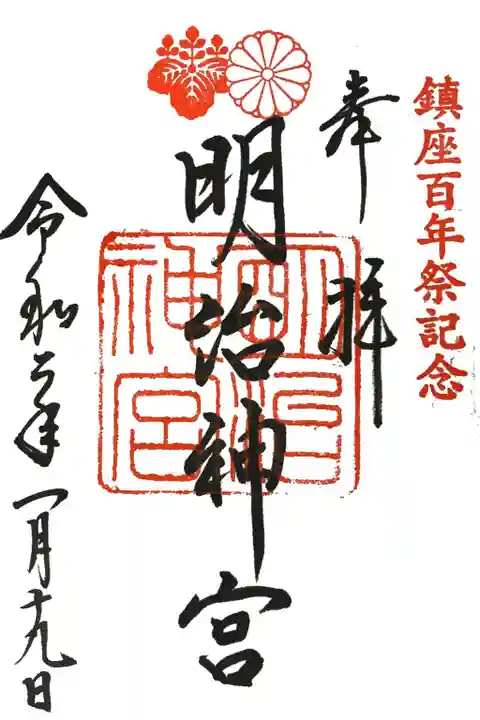 鎮座百年祭記念
奉拝
明治神宮
明治神宮
令和二年一月十九日